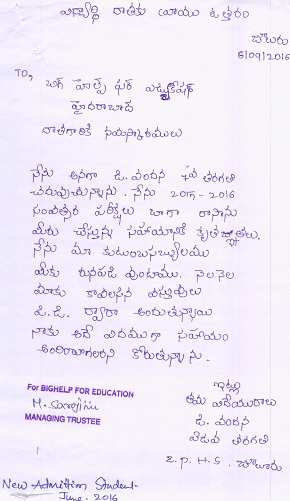 విద్యార్థి దాతకు వ్రాయు ఉత్తరం
చౌటురు
6/09/2016
TO,
బిగ్ హెల్ప్ ఫర్ ఎడ్యుకేషన్
హైదరాబాద్
దాతగారికి నమస్కారములు
నేను అనగా డి. వందన 7వ తరగతి
చదువుచున్నాను. నేను 2015-2016
సంవత్సర పరీక్షలు బాగా రాసాను
మీరు చేస్తున్న సహాయానికి కృతజ్ఞతలు.
నేను మా కుటుంబసభ్యులము
మీకు రుణపడి వుంటాము. నెలనెల
మాకు కావలసిన వస్తువులు
పి.డి. ద్వారా అందుతున్నాయి
నాకు ఇదే విదముగా సహాయం
అందించగలరని కోరుతున్నాను.
ఇట్లు
తమ విదేయురాలు
డి. వందన
ఏడవ తరగతి
Z.P.H.S. చౌటురు
For BIGHELP FOR EDUCATION
MANAGING TRUSTEE
New Admission Student
June, 2016